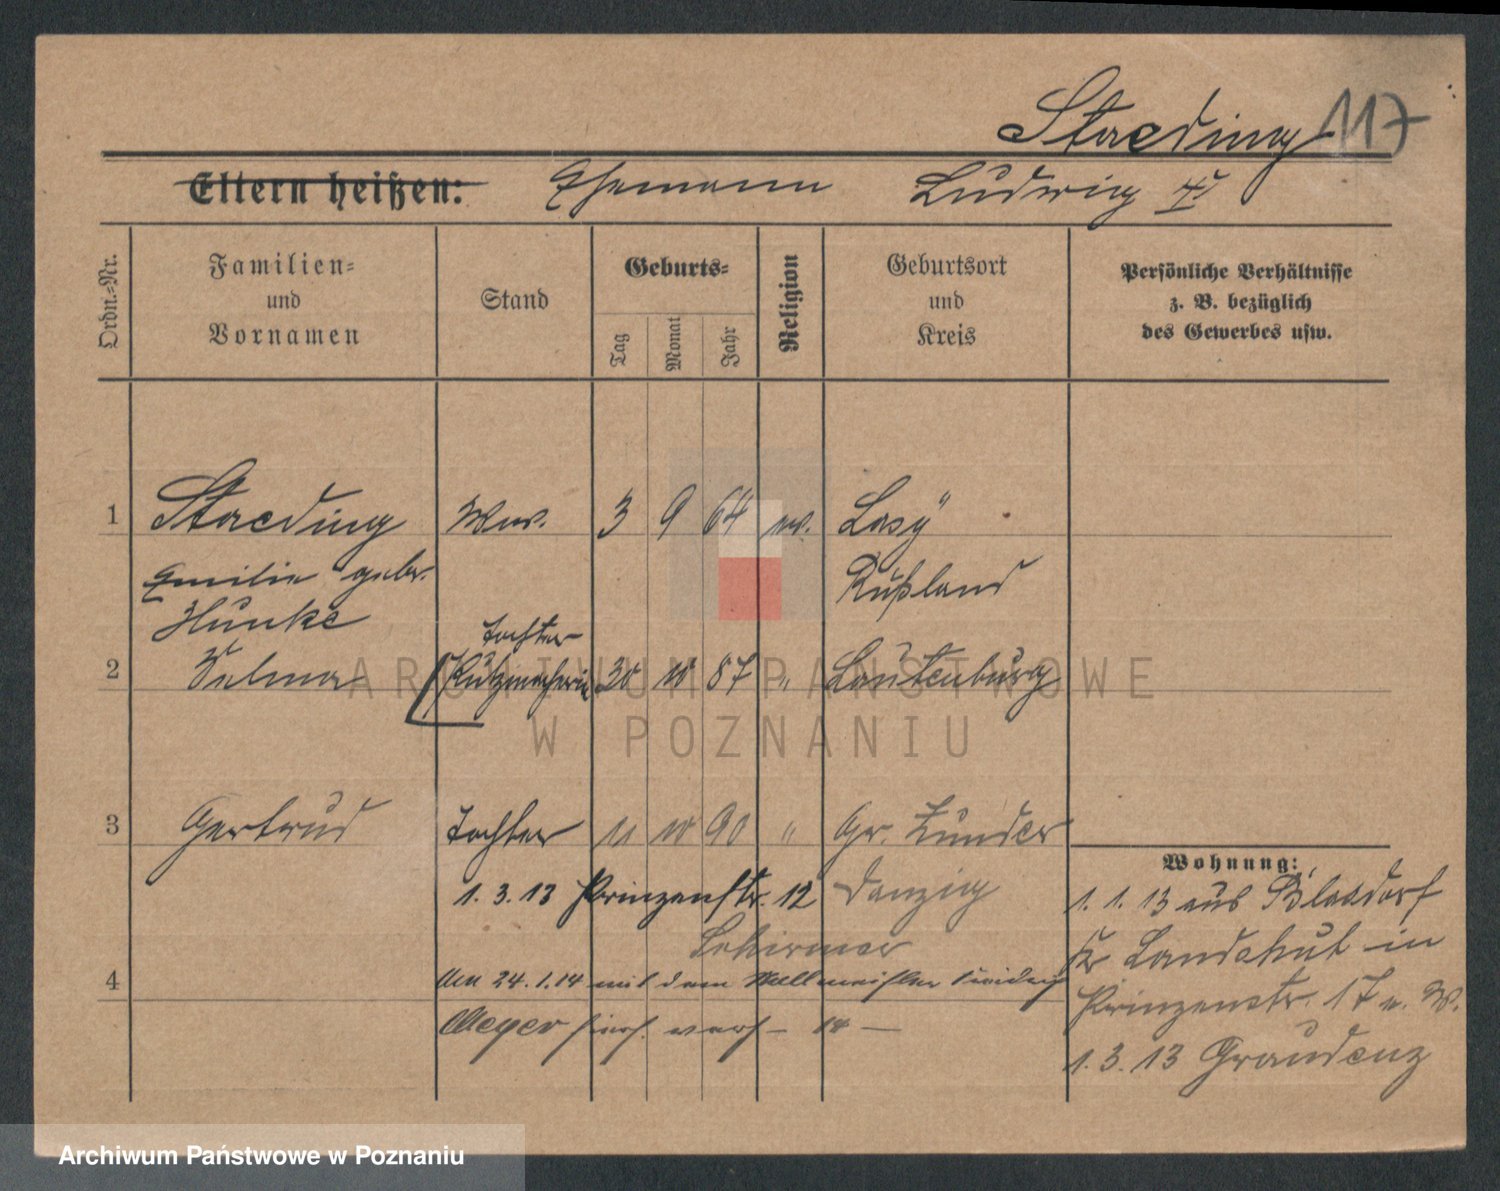 Staeding 117
Eltern heißen: Ehemann Ludwig
Ordn.-Nr.
Familien-
und
Vornamen
Stand
Geburts-
Tag
Monat
Jahr
Religion
Geburtsort
und
Kreis
Persönliche Verhältnisse
z. B. bezüglich
des Gewerbes usw.
1 Staeding Wwe. 3 9 64 ev. Lasÿ
Emilie gebr. Rußland
Hunke
Tochter
2 Selma Putzmacherin 30 10 87 " Lautenburg
3 Gertrud Tochter 11 10 90 " Gr. Zünder
Danzig
1. 3. 13 Prinzenstr. 12
Schirmer
4 Am 24. 1. 14 mit dem Wallmeister
Meyer
Wohnung:
1. 1. 13 aus Blasdorf
Kr Landshut in
Prinzenstr. 17 b. W.
1. 3. 13 Graudenz
ARCHIWUM PAŃSTWOWE
W POZNANIU
Archiwum Państwowe w Poznaniu